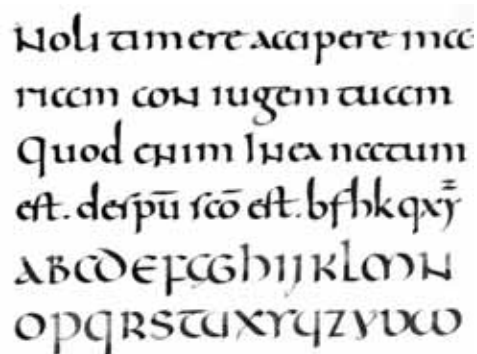 Noli timere accipere ma
riam con iugem tuam
Quod enim In ea natum
eſt. de ſpū ſcō eſt. bfhkqxy
ABCDEFGGhIJKLMN
OPQRSTUXYYZYVW